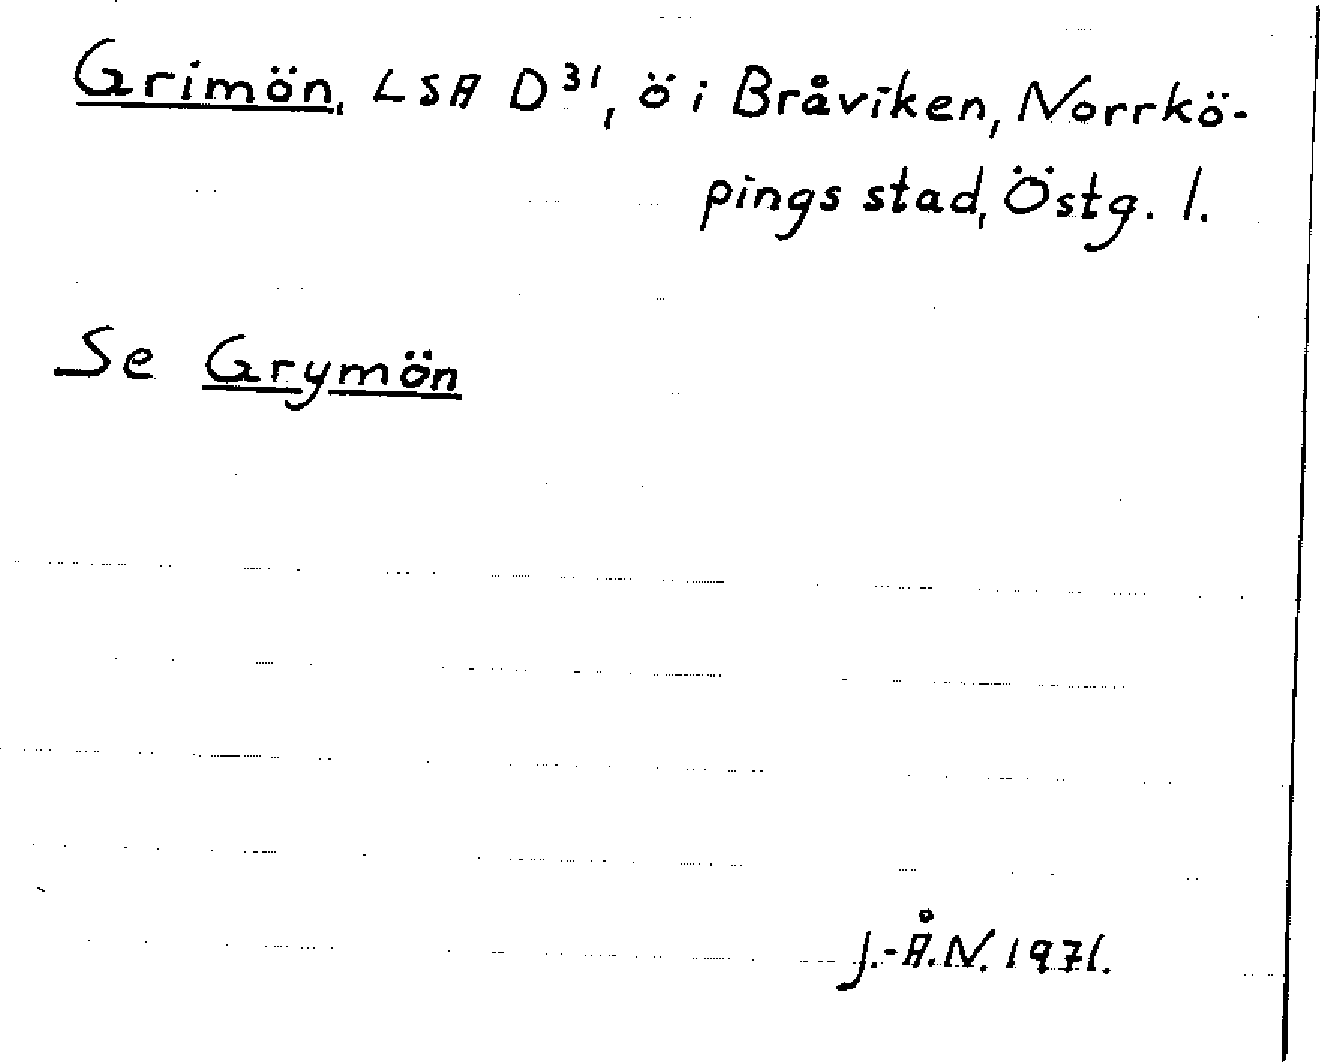 Grimön, LSA D³¹, ö i Bråviken, Norrkö-
pings stad, Östg. l.
Se Grymön
J.-Å.N. 1971.